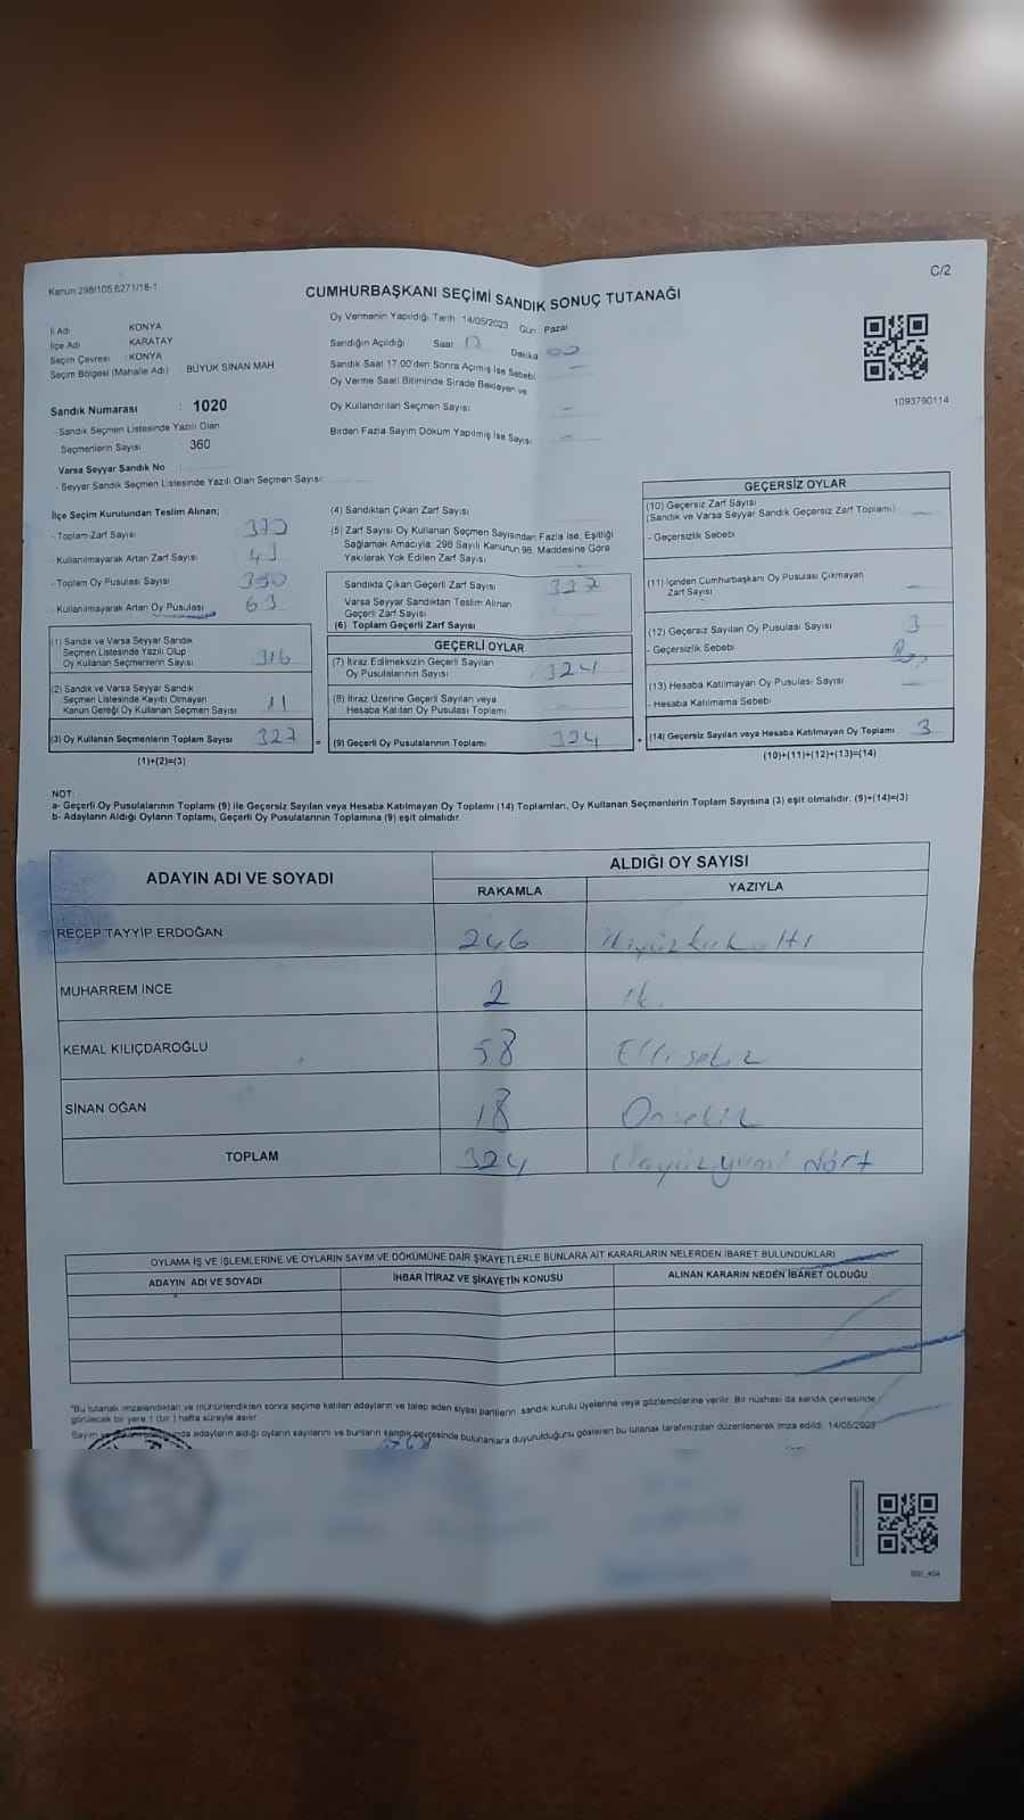 C/2
Kanun 298/105,6271/18-1
CUMHURBAŞKANI SEÇİMİ SANDIK SONUÇ TUTANAĞI
İl Adı KONYA
İlçe Adı KARATAY
Seçim Çevresi : KONYA
Seçim Bölgesi (Mahalle Adı) BÜYÜK SİNAN MAH
Sandık Numarası : 1020
- Sandık Seçmen Listesinde Yazılı Olan
Seçmenlerin Sayısı 360
Varsa Seyyar Sandık No
- Seyyar Sandık Seçmen Listesinde Yazılı Olan Seçmen Sayısı:
Oy Vermenin Yapıldığı Tarih 14/05/2023 Gün: Pazar
Sandığın Açıldığı Saat 17 Dakika 00
Sandık Saat 17:00'den Sonra Açılmış İse Sebebi:
Oy Verme Saati Bitiminde Sırada Bekleyen ve
Oy Kullandırılan Seçmen Sayısı:
Birden Fazla Sayım Döküm Yapılmış İse Sayısı:
1093790114
İlçe Seçim Kurulundan Teslim Alınan;
- Toplam Zarf Sayısı
- Kullanılmayarak Artan Zarf Sayısı
- Toplam Oy Pusulası Sayısı
- Kullanılmayarak Artan Oy Pusulası 63
(1) Sandık ve Varsa Seyyar Sandık
Seçmen Listesinde Yazılı Olup
Oy Kullanan Seçmenlerin Sayısı 316
(2) Sandık ve Varsa Seyyar Sandık
Seçmen Listesinde Kayıtlı Olmayan
Kanun Gereği Oy Kullanan Seçmen Sayısı 11
(3) Oy Kullanan Seçmenlerin Toplam Sayısı 327
(1)+(2)=(3)
(4) Sandıktan Çıkan Zarf Sayısı
(5) Zarf Sayısı Oy Kullanan Seçmen Sayısından Fazla İse, Eşitliği
Sağlamak Amacıyla; 298 Sayılı Kanunun 98. Maddesine Göre
Yakılarak Yok Edilen Zarf Sayısı
Sandıkta Çıkan Geçerli Zarf Sayısı 327
Varsa Seyyar Sandıktan Teslim Alınan
Geçerli Zarf Sayısı
(6) Toplam Geçerli Zarf Sayısı
GEÇERLİ OYLAR
(7) İtiraz Edilmeksizin Geçerli Sayılan
Oy Pusulalarının Sayısı 324
(8) İtiraz Üzerine Geçerli Sayılan veya
Hesaba Katılan Oy Pusulası Toplamı
(9) Geçerli Oy Pusulalarının Toplamı 324
GEÇERSİZ OYLAR
(10) Geçersiz Zarf Sayısı
(Sandık ve Varsa Seyyar Sandık Geçersiz Zarf Toplamı)
- Geçersizlik Sebebi
(11) İçinden Cumhurbaşkanı Oy Pusulası Çıkmayan
Zarf Sayısı
(12) Geçersiz Sayılan Oy Pusulası Sayısı 3
- Geçersizlik Sebebi
(13) Hesaba Katılmayan Oy Pusulası Sayısı
- Hesaba Katılmama Sebebi
(14) Geçersiz Sayılan veya Hesaba Katılmayan Oy Toplamı 3
(10)+(11)+(12)+(13)=(14)
NOT
a- Geçerli Oy Pusulalarının Toplamı (9) ile Geçersiz Sayılan veya Hesaba Katılmayan Oy Toplamı (14) Toplamları, Oy Kullanan Seçmenlerin Toplam Sayısına (3) eşit olmalıdır. (9)+(14)=(3)
b- Adayların Aldığı Oyların Toplamı, Geçerli Oy Pusulalarının Toplamına (9) eşit olmalıdır.
ADAYIN ADI VE SOYADI
ALDIĞI OY SAYISI
RAKAMLA YAZIYLA
RECEP TAYYİP ERDOĞAN 246 İkiyüzkırkaltı
MUHARREM İNCE 2 iki
KEMAL KILIÇDAROĞLU 58 Ellisekiz
SİNAN OĞAN 18 Onsekiz
TOPLAM 324 Üçyüzyirmi dört
OYLAMA İŞ VE İŞLEMLERİNE VE OYLARIN SAYIM VE DÖKÜMÜNE DAİR ŞİKAYETLERLE BUNLARA AİT KARARLARIN NELERDEN İBARET BULUNDUKLARI
ADAYIN ADI VE SOYADI İHBAR İTİRAZ VE ŞİKAYETİN KONUSU ALINAN KARARIN NEDEN İBARET OLDUĞU
"Bu tutanak imzalandıktan ve mühürlendikten sonra seçime katılan adayların ve talep eden siyasi partilerin sandık kurulu üyelerine veya gözlemcilerine verilir. Bir nüshası da sandık çevresinde
görülecek bir yere 1 (bir) hafta süreyle asılır.
Sayım adayların aldığı oyların sayılarını ve bunların sandık çevresinde bulunanlara duyurulduğunu gösteren bu tutanak tarafımızdan düzenlenerek imza edildi. 14/05/2023